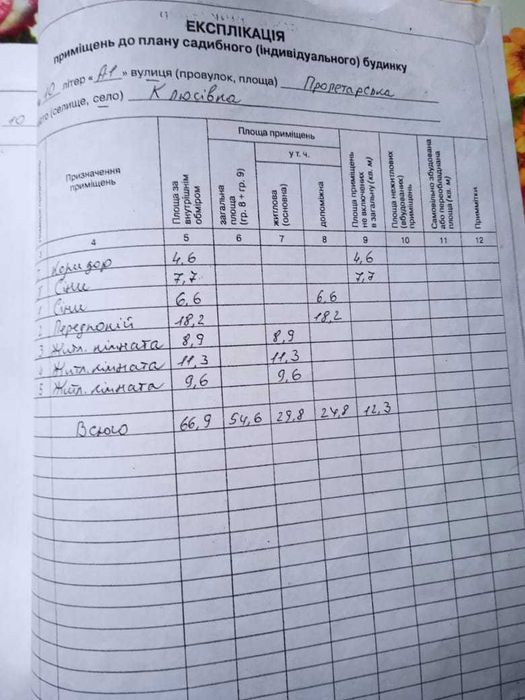 ЕКСПЛІКАЦІЯ
приміщень до плану садибного (індивідуального) будинку
10 літер «А1» вулиця (провулок, площа) Пролетарська
(селище, село) Клюсівка
10
Призначення приміщень
Площа за внутрішнім обміром
Площа приміщень
загальна площа (гр. 8 + гр. 9)
у т. ч.
житлова (основна)
допоміжна
Площа приміщень не включених в загальну (кв. м)
Площа нежитлових (вбудованих) приміщень
Самовільно збудована або переобладнана площа (кв. м)
Примітки
4 5 6 7 8 9 10 11 12
Коридор 4,6 4,6
Сіни 7,7 7,7
1 Сіни 6,6 6,6
2 Передпокій 18,2 18,2
3 Житл. кімната 8,9 8,9
4 Житл. кімната 11,3 11,3
5 Житл. кімната 9,6 9,6
Всього 66,9 54,6 29,8 24,8 12,3